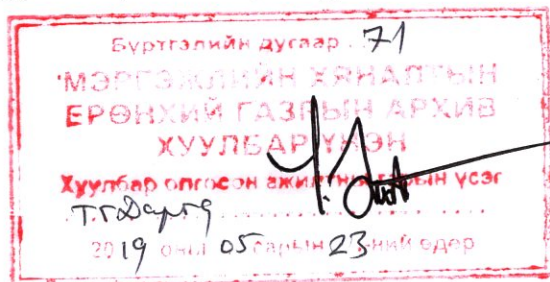 Бүртгэлийн дугаар .. 71
МЭРГЭЖЛИЙН ХЯНАЛТЫН
ЕРӨНХИЙ ГАЗРЫН АРХИВ
ХУУЛБАР ҮНЭН
Хуулбар олгосон ажилтны гарын үсэг
2019 оны 05 сарын 23-ний өдөр